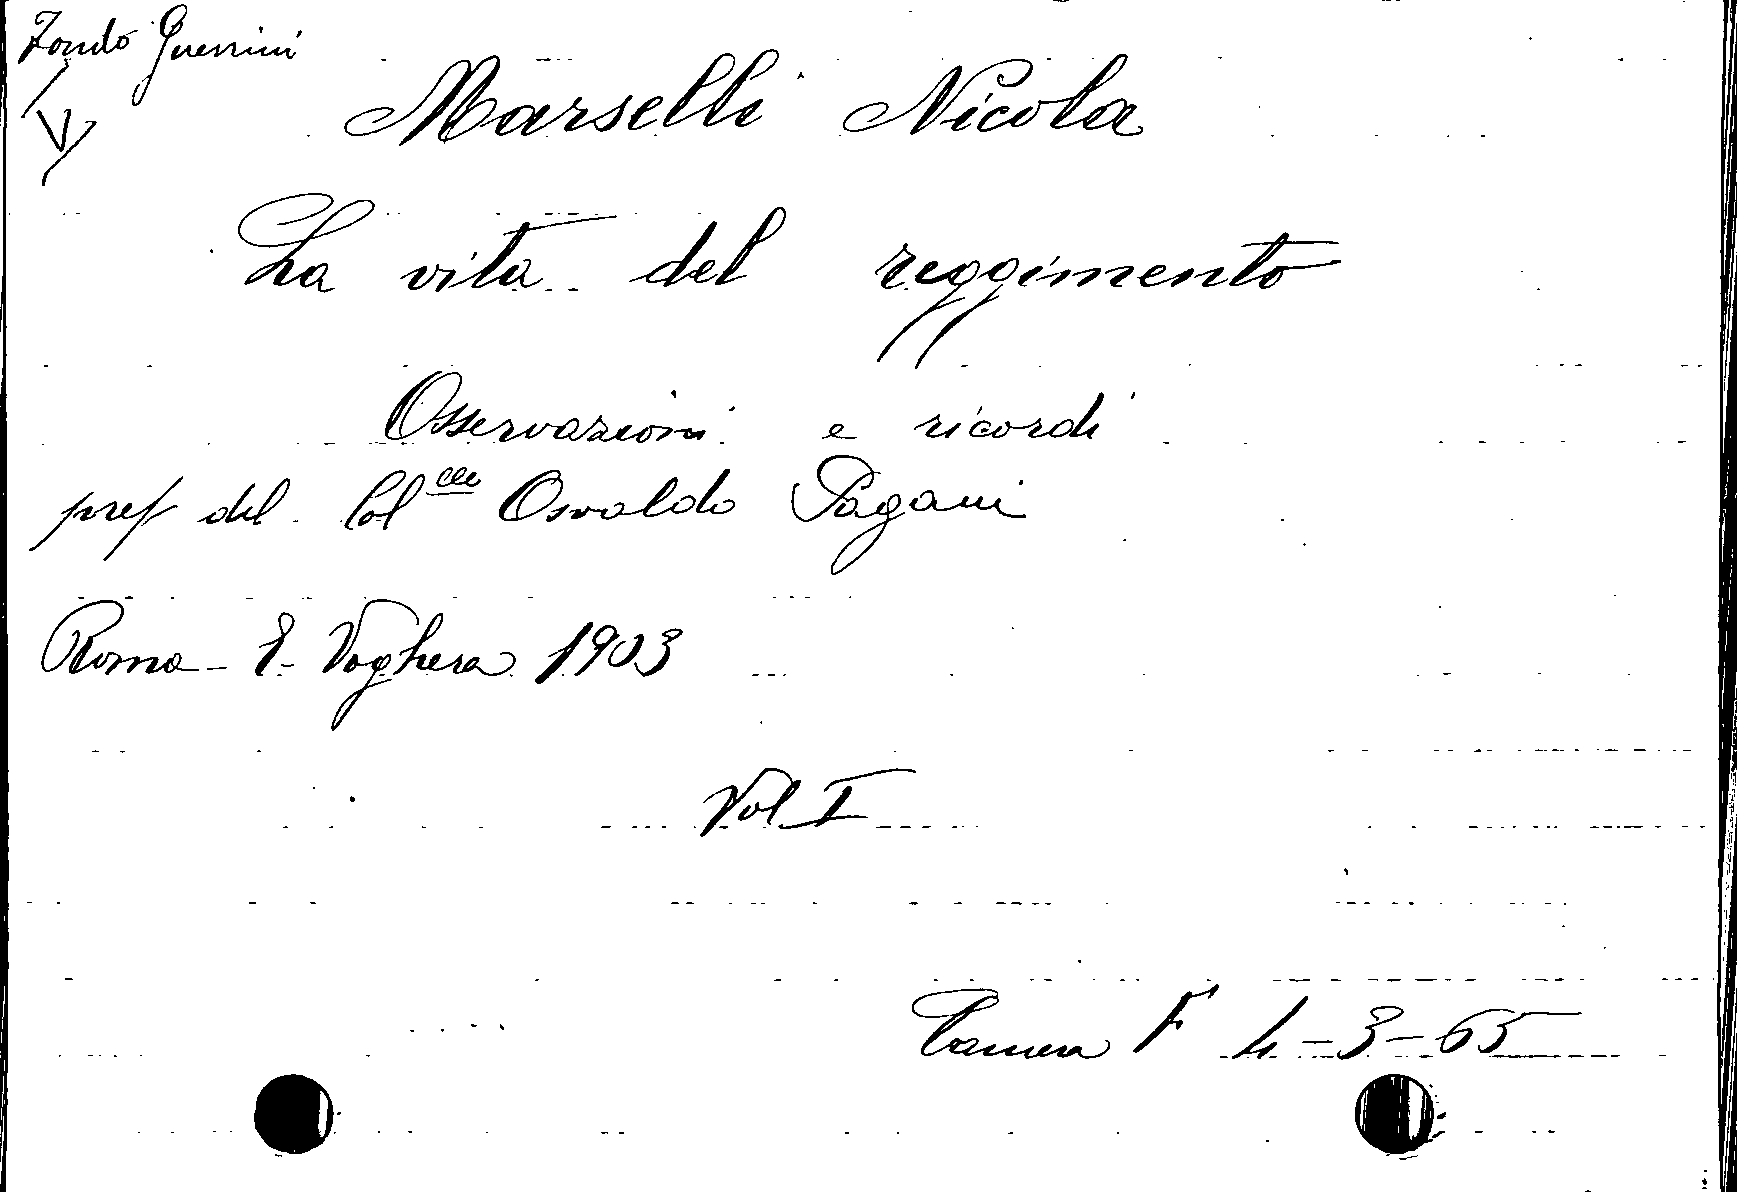 Fondo Guerrini
V
Marselli Nicola
La vita del reggimento
Osservazioni e ricordi
pref del Col.llo Osvaldo Pagani
Roma - E. Voghera 1903
Vol I
Camera F 4-3-65